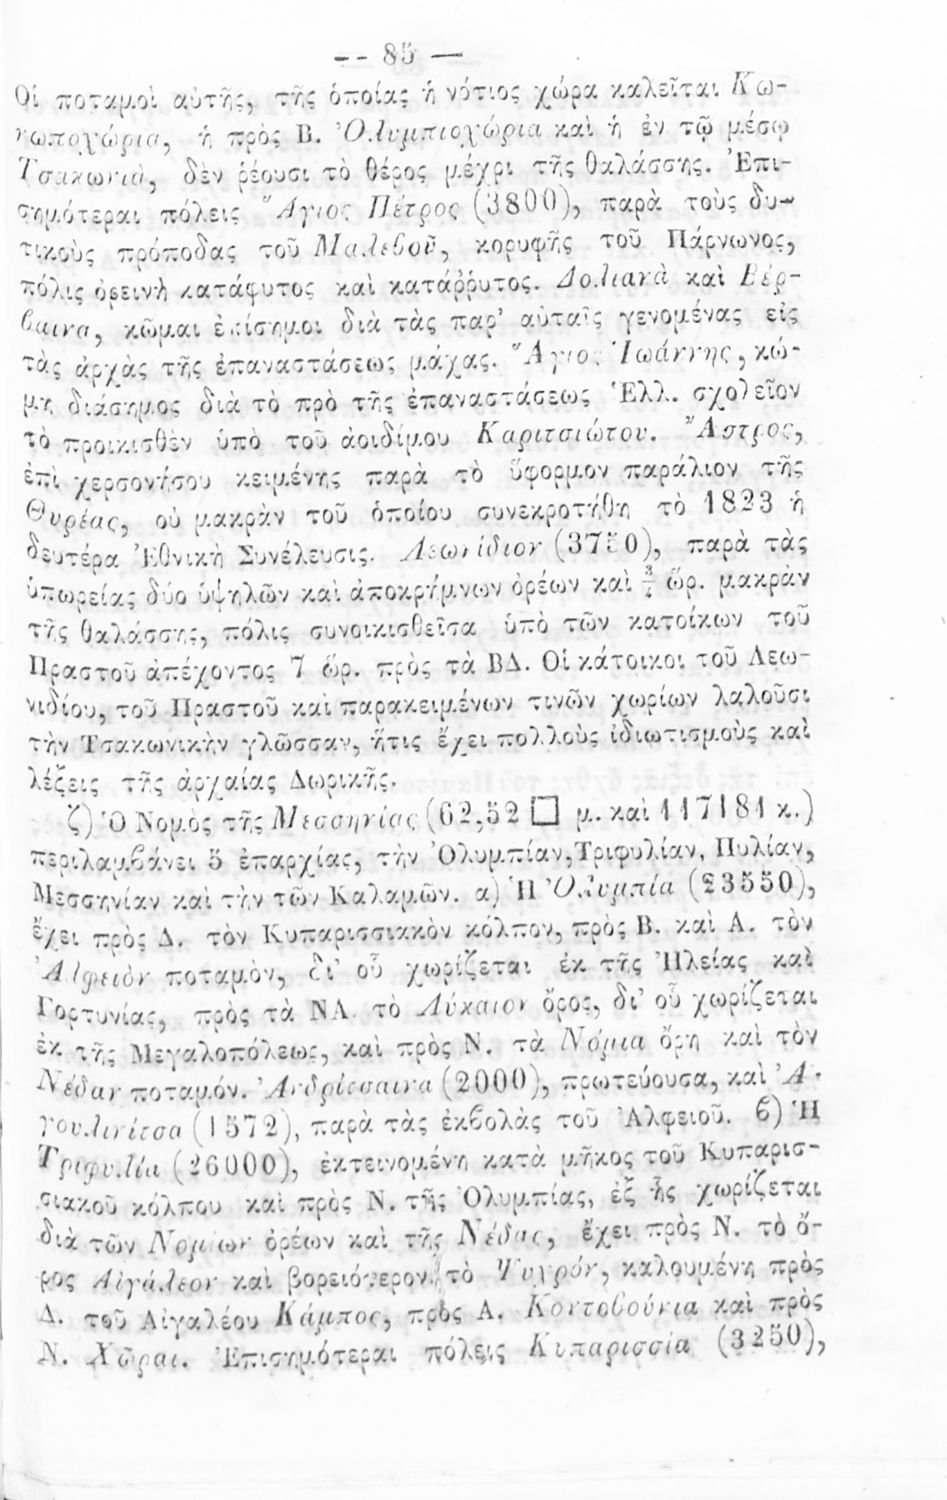 -- 85 —
Οἱ ποταμοὶ αὐτῆς, τῆς ὁποίας ἡ νότιος χώρα καλεῖται Κω-
νωποχώρια, ἡ πρὸς Β. Ὀλυμπιοχώρια καὶ ἡ ἐν τῷ μέσῳ
Τσακωνιὰ, δὲν ῥέουσι τὸ θέρος μέχρι τῆς θαλάσσης. Ἐπι-
σημότεραι πόλεις Ἅγιος Πέτρος (3800), παρὰ τοὺς δυ-
τικοὺς πρόποδας τοῦ Μαλεβοῦ, κορυφῆς τοῦ Πάρνωνος,
πόλις ὀρεινὴ κατάφυτος καὶ κατάῤῥυτος. Δολιανὰ καὶ Βέρ-
βαινα, κῶμαι ἐπίσημοι διὰ τὰς παρ’ αὐταῖς γενομένας εἰς
τὰς ἀρχὰς τῆς ἐπαναστάσεως μάχας. Ἅγιος Ἰωάννης, κώ-
μη διάσημος διὰ τὸ πρὸ τῆς ἐπαναστάσεως Ἑλλ. σχολεῖον
τὸ προικισθὲν ὑπὸ τοῦ ἀοιδίμου Καριτσιώτου. Ἄστρος,
ἐπὶ χερσονήσου κειμένης παρὰ τὸ ὕφορμον παράλιον τῆς
Θυρέας, οὐ μακρὰν τοῦ ὁποίου συνεκροτήθη τὸ 1823 ἡ
δευτέρα Ἐθνικὴ Συνέλευσις. Λεωνίδιον (3750), παρὰ τὰς
ὑπωρείας δύο ὑψηλῶν καὶ ἀποκρήμνων ὀρέων καὶ 3/4 ὥρ. μακρὰν
τῆς θαλάσσης, πόλις συνοικισθεῖσα ὑπὸ τῶν κατοίκων τοῦ
Πραστοῦ ἀπέχοντος 7 ὥρ. πρὸς τὰ ΒΔ. Οἱ κάτοικοι τοῦ Λεω-
νιδίου, τοῦ Πραστοῦ καὶ παρακειμένων τινῶν χωρίων λαλοῦσι
τὴν Τσακωνικὴν γλῶσσαν, ἥτις ἔχει πολλοὺς ἰδιωτισμοὺς καὶ
λέξεις τῆς ἀρχαίας Δωρικῆς.
ζ) Ὁ Νομὸς τῆς Μεσσηνίας (62,52 □ μ. καὶ 117181 κ.)
περιλαμβάνει 5 ἐπαρχίας, τὴν Ὀλυμπίαν, Τριφυλίαν, Πυλίαν,
Μεσσηνίαν καὶ τὴν τῶν Καλαμῶν. α) Ἡ Ὀλυμπία (23550),
ἔχει πρὸς Δ. τὸν Κυπαρισσιακὸν κόλπον, πρὸς Β. καὶ Α. τὸν
Ἀλφειὸν ποταμὸν, δι’ οὗ χωρίζεται ἐκ τῆς Ἠλείας καὶ
Γορτυνίας, πρὸς τὰ ΝΑ. τὸ Λύκαιον ὄρος, δι’ οὗ χωρίζεται
ἐκ τῆς Μεγαλοπόλεως, καὶ πρὸς Ν. τὰ Νόμια ὄρη καὶ τὸν
Νέδαν ποταμόν. Ἀνδρίτσαινα (2000), πρωτεύουσα, καὶ Ἀ-
γουλινίτσα (1572), παρὰ τὰς ἐκβολὰς τοῦ Ἀλφειοῦ. β) Ἡ
Τριφυλία (26000), ἐκτεινομένη κατὰ μῆκος τοῦ Κυπαρισ-
σιακοῦ κόλπου καὶ πρὸς Ν. τῆς Ὀλυμπίας, ἐξ ἧς χωρίζεται
διὰ τῶν Νομίων ὀρέων καὶ τῆς Νέδας, ἔχει πρὸς Ν. τὸ ὄ-
ρος Αἰγάλεον καὶ βορειότερον τὸ Ψυχρόν, καλουμένη πρὸς
Δ. τοῦ Αἰγαλέου Κάμπος, πρὸς Α. Κοντοβούνια καὶ πρὸς
Ν. Χῶραι. Ἐπισημότεραι πόλεις Κυπαρισσία (3250),